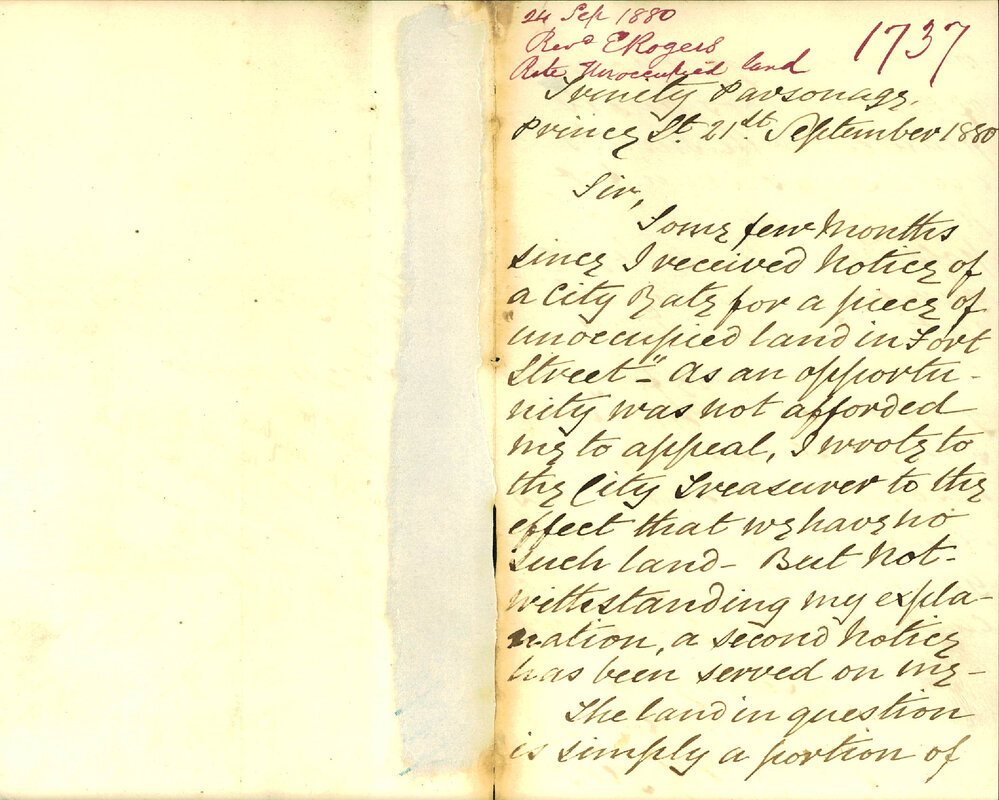 24 Sep 1880
Revd E Rogers
Rate Unoccupied land
1737
Trinity Parsonage.
Princes St. 21st September 1880
Sir,
Some few Months
since I received Notice of
a City Rate for a piece of
unoccupied land in Fort
Street" - As an opportu-
nity was not afforded
me to appeal, I wrote to
the City Treasurer to the
effect that we have no
such land - But Not-
withstanding my expla-
nation, a second Notice
has been served on me -
The land in question
is simply a portion of